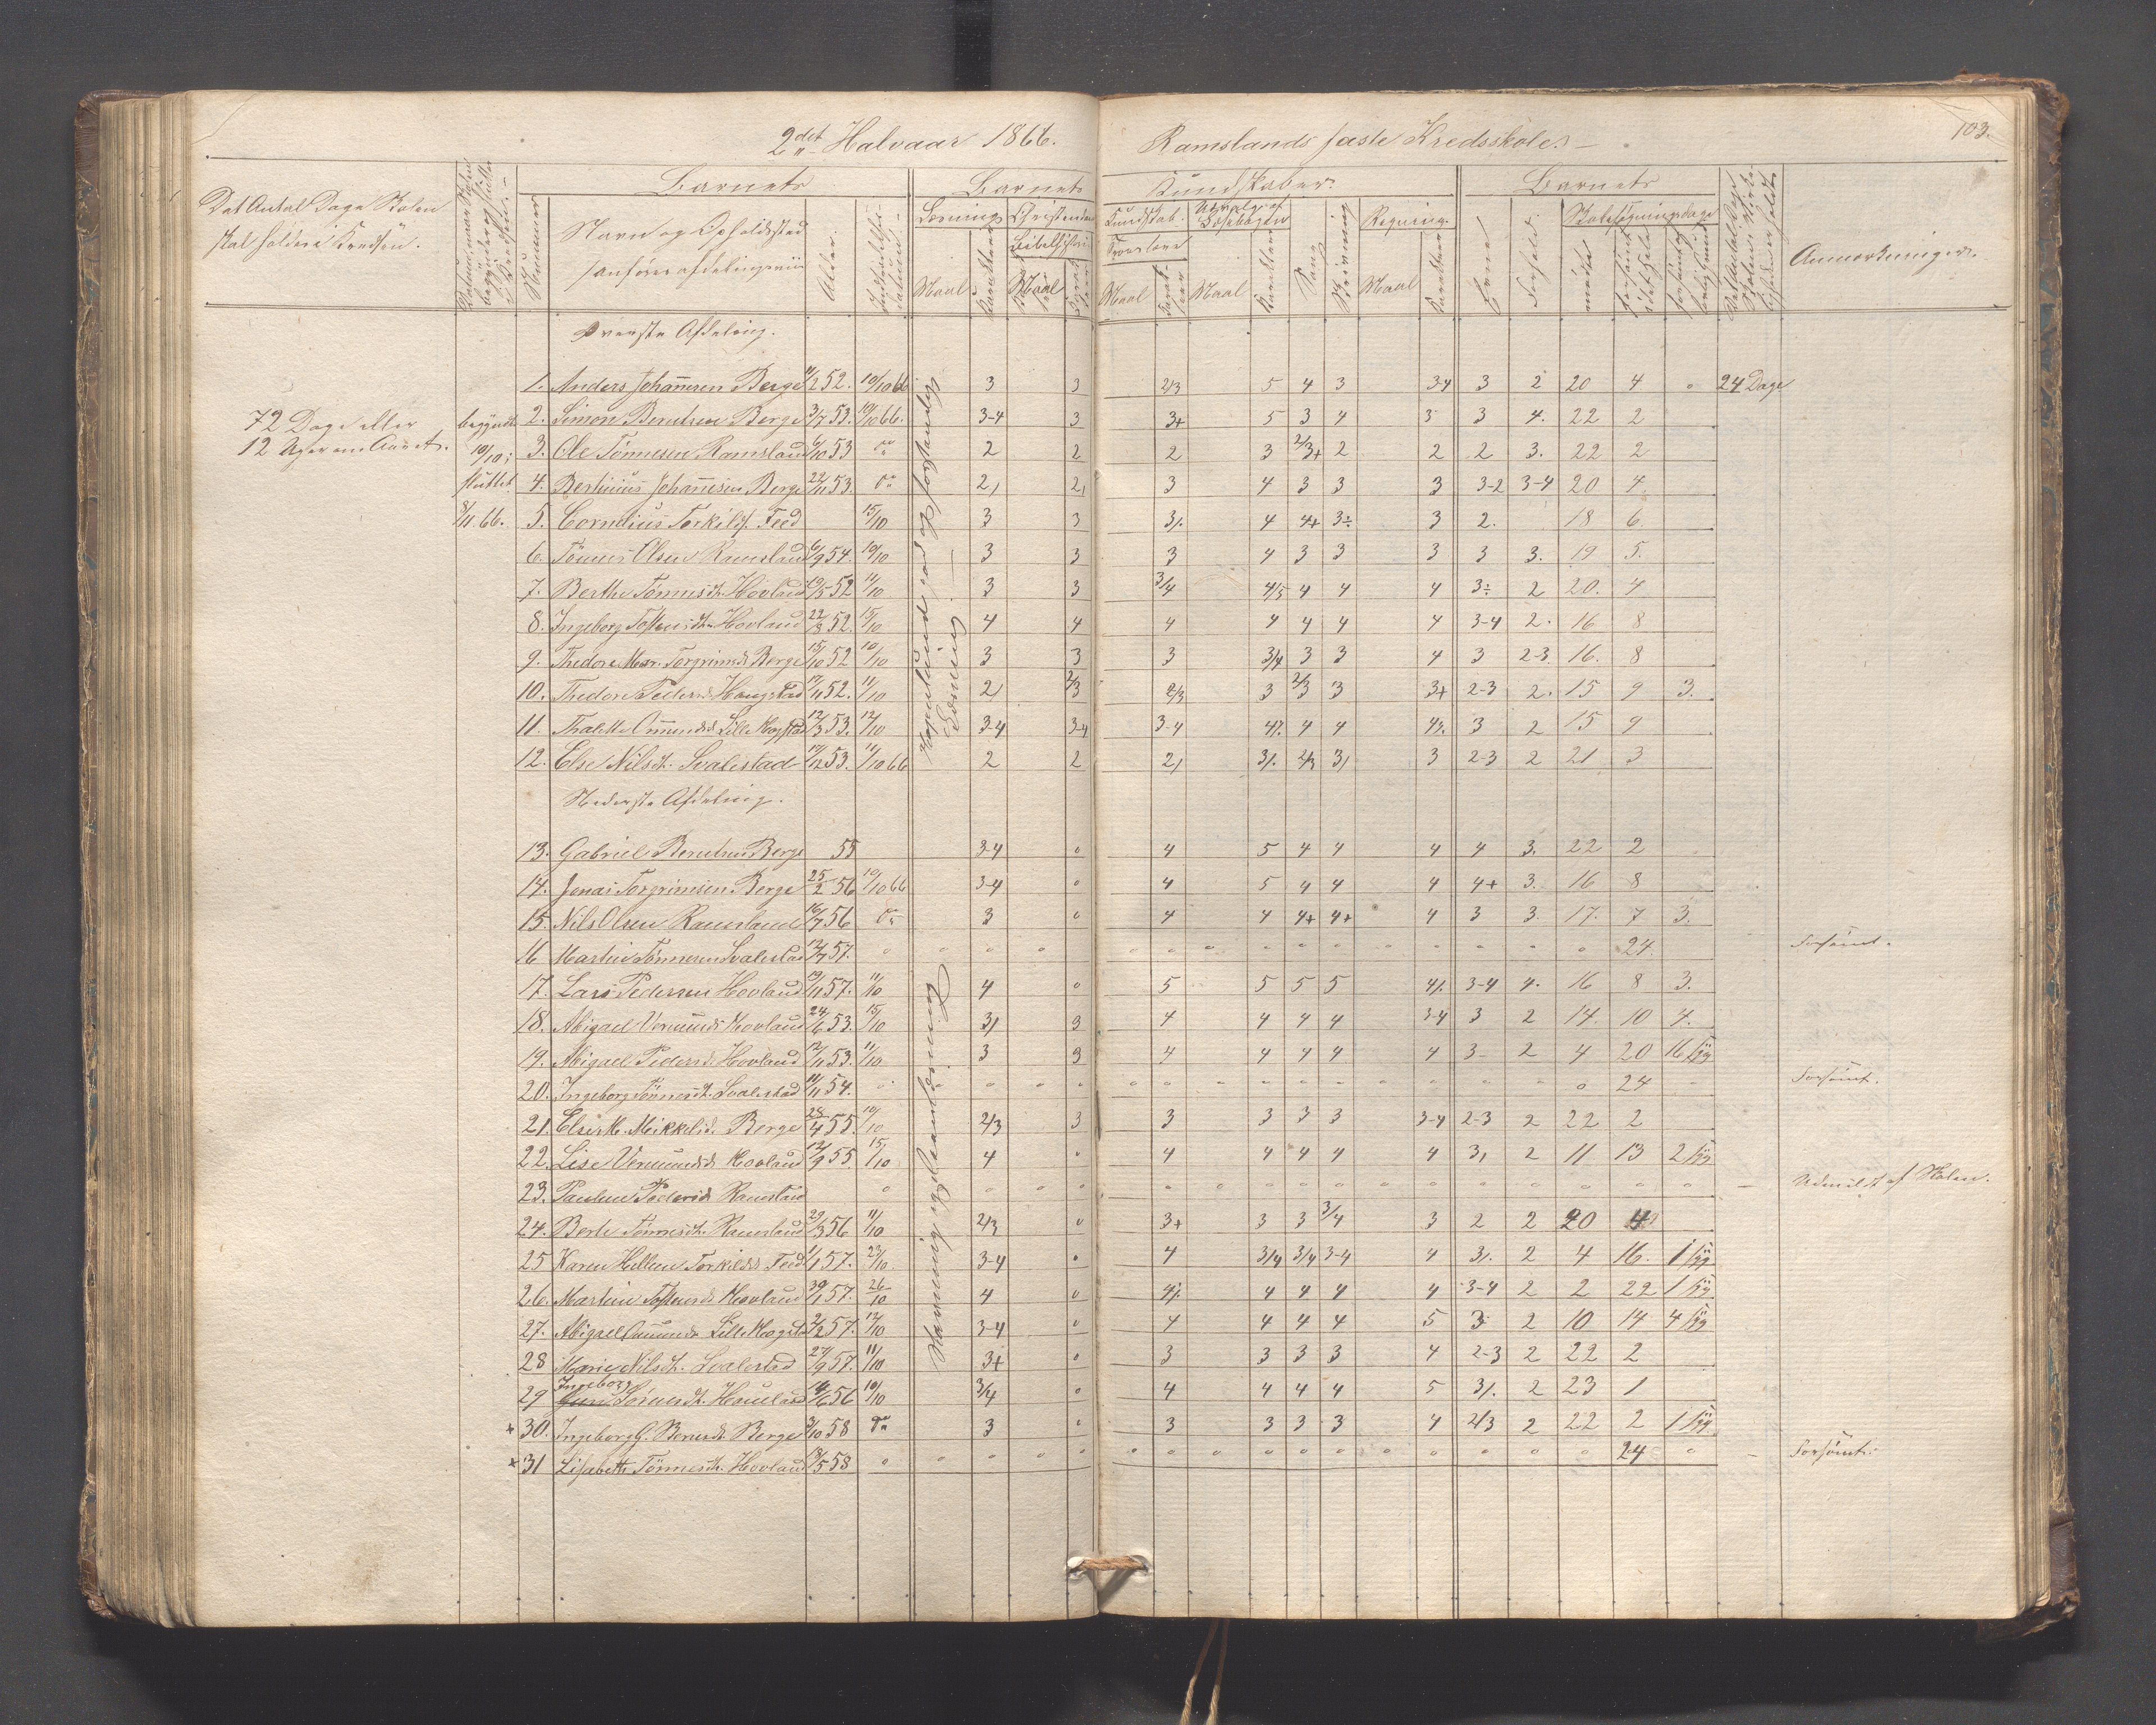 2det Halvaar 1866.
Ramslands faste Kredsskole.
103.
Det Antal Dage Skolen
skal holdes i Kredsen.
Barnets
Nummer
Navn og Opholdssted
Alder.
Barnets
Læsning
Maal
Karakter
Christendoms
Maal
Kundskaber.
Kundskab.
Troeslære
Maal
Udvalg af
Læsebogen
Maal
Karakter
Sang
Skrivning
Regning.
Maal
Karakter
Barnets
Evne
Forhold.
Skolesøgningsdage
mødt
Anmærkninger.
Øverste Afdeling.
1. Anders Johannesen Berge 11/2 52. 10/10 66 3 3 2/3 5 4 3 3-4 3 2 20 4 0 24 Dage
72 Dage eller
12 Uger om Aaret.
begyndt
10/10;
sluttet
8/11 66.
2. Simon Berntsen Berge 3/7 53. 10/10 66. 3-4 3 3+ 5 3 4 3 3 4. 22 2
3. Ole Tønnesen Ramsland 6/10 53 do 2 2 2 3 2/3+ 2 2 2 3. 22 2
4. Bertinius Johannesen Berge 22/11 53. do 2, 2, 3 4 3 3 3 3-2 3-4 20 4
5. Cornelius Torkilds. Feed 15/10 3 3 3/. 4 4+ 3÷ 3 2. 18 6.
6. Tönnes Olsen Ramsland 6/9 54. 10/10 3 3 3 4 3 3 3 3 3. 19 5.
7. Berthe Tønnesdt. Hovland 19/5 52 11/10 3 3 3/4 4/5 4 4 4 3÷ 2 20. 4
8. Ingeborg Tostensdtr. Hovland 22/8 52. 15/10 4 4 4 4 4 4 4 3-4 2. 16 8
9. Thedore Mar. Torgrimsd. Berge 15/10 52 10/10 3 3 3 3/4 3 3 4 3 2-3. 16. 8
10. Thedore Pedersd. Haugstad 17/11 52. 11/10 2, 2/3 2/3 3 2/3 3 3+ 2-3 2. 15 9 3.
11. Thalette Omundsd. Lille Mogstad 12/3 53. 12/10 3-4 3-4 3-4 4/. 4 4 4/. 3 2 15 9
12. Else Nilsdt. Svalestad 17/12 53. 11/10 66 2 2 2, 3/. 2/3 3, 3 2-3 2 21 3
Nederste Afdeling.
13. Gabriel Berntsen Berge 55 3-4 0 4 5 4 4 4 4 3. 22 2
14. Jonas Torgrimsen Berge 25/2 56 10/10 66 3-4 0 4 5 4 4 4 4+ 3. 16 8
15. Nils Olsen Ramsland 16/7 56 do 3 0 4 4 4+ 4+ 4 3 3. 17. 7 3.
16 Martin Tönnesen Svalestad 12/7 57. 24. Forsömt.
17. Lars Pedersen Hovland 19/11 57. 11/10 4 0 5 5 5 5 4/. 3-4 4. 16 8 3.
18. Abigael Vermundsd. Hovland 24/6 53. 15/10 3, 3 4 4 4 4 3-4 3 2 14. 10 4.
19. Abigael Pedersd. Hovland 12/11 53. 11/10 3 3 4 4 4 4 4 3- 2 4 20 16 syg
20. Ingeborg Tönnesdt. Svalestad 11/11 54. 24 Forsömt.
21. Else M. Mikkelsd. Berge 28/4 55. 10/10 2/3 3 3 3 3 3 3-4 2-3 2 22 2
22. Lise Vermundsd. Hovland 12/9 55. 15/10 4 0 4 4 4 4 4 3, 2 11 13 2 syg
23. Pauline Pedersd. Ramsland Udmeldt af Skolen.
24. Berte Tønnesdt. Ramsland 29/3 56 11/10 2/3 0 3+ 3 3 3/4 3 2 2 20 4
25 Karen Hellene Torkildsd. Feed 1/1 57. 23/10 3-4 0 4 3/4 3/4 3-4 4 3/. 2 4 16. 1 syg
26. Martine Tostensd. Hovland 30/1 57. 26/10 4 0 4/. 4 4 4 4 3-4 2 2 22 1 syg
27. Abigael Omunds. Lille Mogstad 2/2 57. 12/10 3-4 0 4 4 4 4 5 3 2 10 14 4 syg
28 Marie Nilsdt. Svalestad 27/9 57. 11/10 3+ 0 3 3 3 3 4 2-3 2 22 2
Ingeborg
29 Sörensdt. Haueland 14/6 56 10/10 3/4 0 4 4 4 4 5 3/. 2 23 1
x 30. Ingeborg G. Berntsd. Berge 3/10 58 do 3 0 3 3 3 3 4 2/3 2 22 2 1 syg
x 31 Lisabette Tönnesdt. Hovland 13/5 58 24 Forsömt.